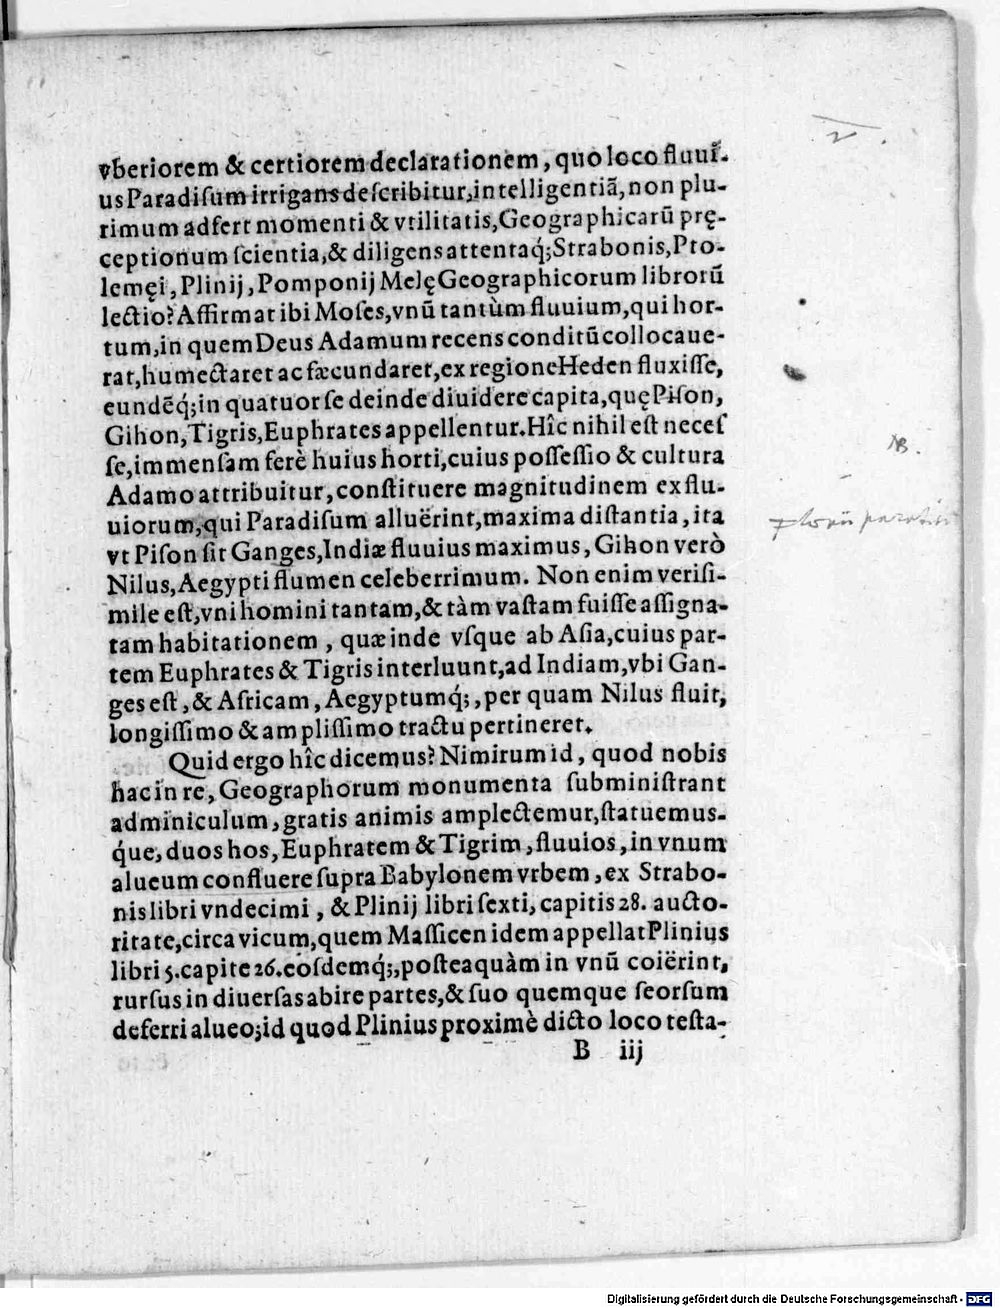 vberiorem & certiorem declarationem, quo loco fluui-
us Paradiſum irrigans deſcribitur, intelligentiā, non plu-
rimum adfert momenti & vtilitatis, Geographicarū prę-
ceptionum ſcientia, & diligens attentaq́; Strabonis, Pto-
lemęi, Plinij, Pomponij Melę Geographicorum librorū
lectio? Affirmat ibi Moſes, vnū tantùm fluuium, qui hor-
tum, in quem Deus Adamum recens conditū collocaue-
rat, humectaret ac fæcundaret, ex regione Heden fluxiſſe,
eundēq́; in quatuor ſe deinde diuidere capita, quę Piſon,
Gihon, Tigris, Euphrates appellentur. Hîc nihil eſt neceſ
ſe, immenſam ferè huius horti, cuius poſſeſſio & cultura
Adamo attribuitur, conſtituere magnitudinem ex flu-
uiorum, qui Paradiſum alluërint, maxima diſtantia, ita
vt Piſon ſit Ganges, Indiæ fluuius maximus, Gihon verò
Nilus, Aegypti flumen celeberrimum. Non enim veriſi-
mile eſt, vni homini tantam, & tàm vaſtam fuiſſe aſſigna-
tam habitationem, quæ inde vſque ab Aſia, cuius par-
tem Euphrates & Tigris interluunt, ad Indiam, vbi Gan-
ges eſt, & Africam, Aegyptumq́;, per quam Nilus fluit,
longiſſimo & ampliſſimo tractu pertineret.
Quid ergo hîc dicemus? Nimirum id, quod nobis
hac in re, Geographorum monumenta ſubminiſtrant
adminiculum, gratis animis amplectemur, ſtatuemus-
q́ue, duos hos, Euphratem & Tigrim, fluuios, in vnum
alueum confluere ſupra Babylonem vrbem, ex Strabo-
nis libri vndecimi, & Plinij libri ſexti, capitis 28. aucto-
ritate, circa vicum, quem Maſſicen idem appellat Plinius
libri 5. capite 26. eoſdemq́;, poſteaquàm in vnū coiërint,
rurſus in diuerſas abire partes, & ſuo quemque ſeorſum
deferri alueo; id quod Plinius proximè dicto loco teſta-
B iij
NB.
Digitalisierung gefördert durch die Deutsche Forschungsgemeinschaft - DFG